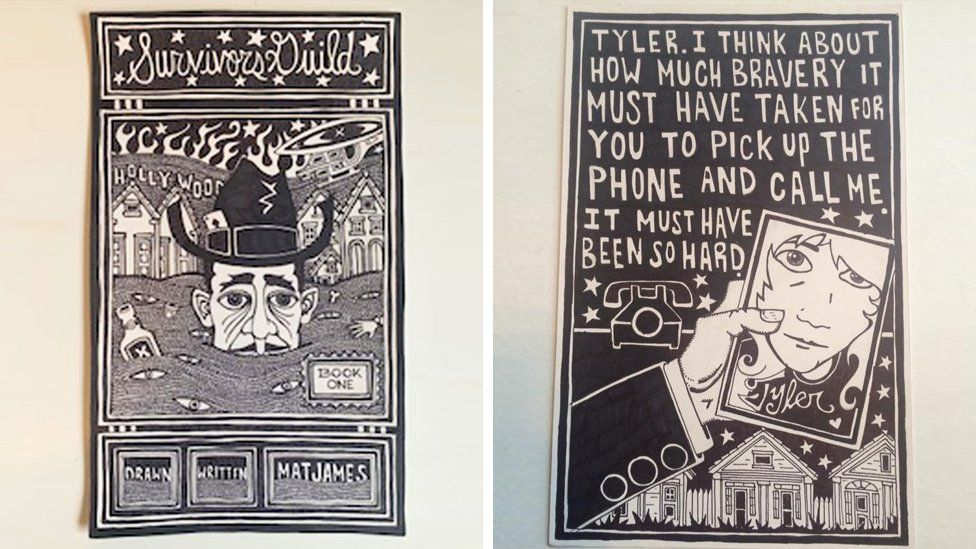 Survivors Guild
HOLLYWOOD
BOOK
ONE
DRAWN
WRITTEN
MAT JAMES
TYLER. I THINK ABOUT
HOW MUCH BRAVERY IT
MUST HAVE TAKEN FOR
YOU TO PICK UP THE
PHONE AND CALL ME.
IT MUST HAVE
BEEN SO HARD.
Tyler